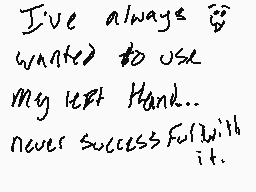 I've always
wanted to use
my left Hand...
never successful with
it.